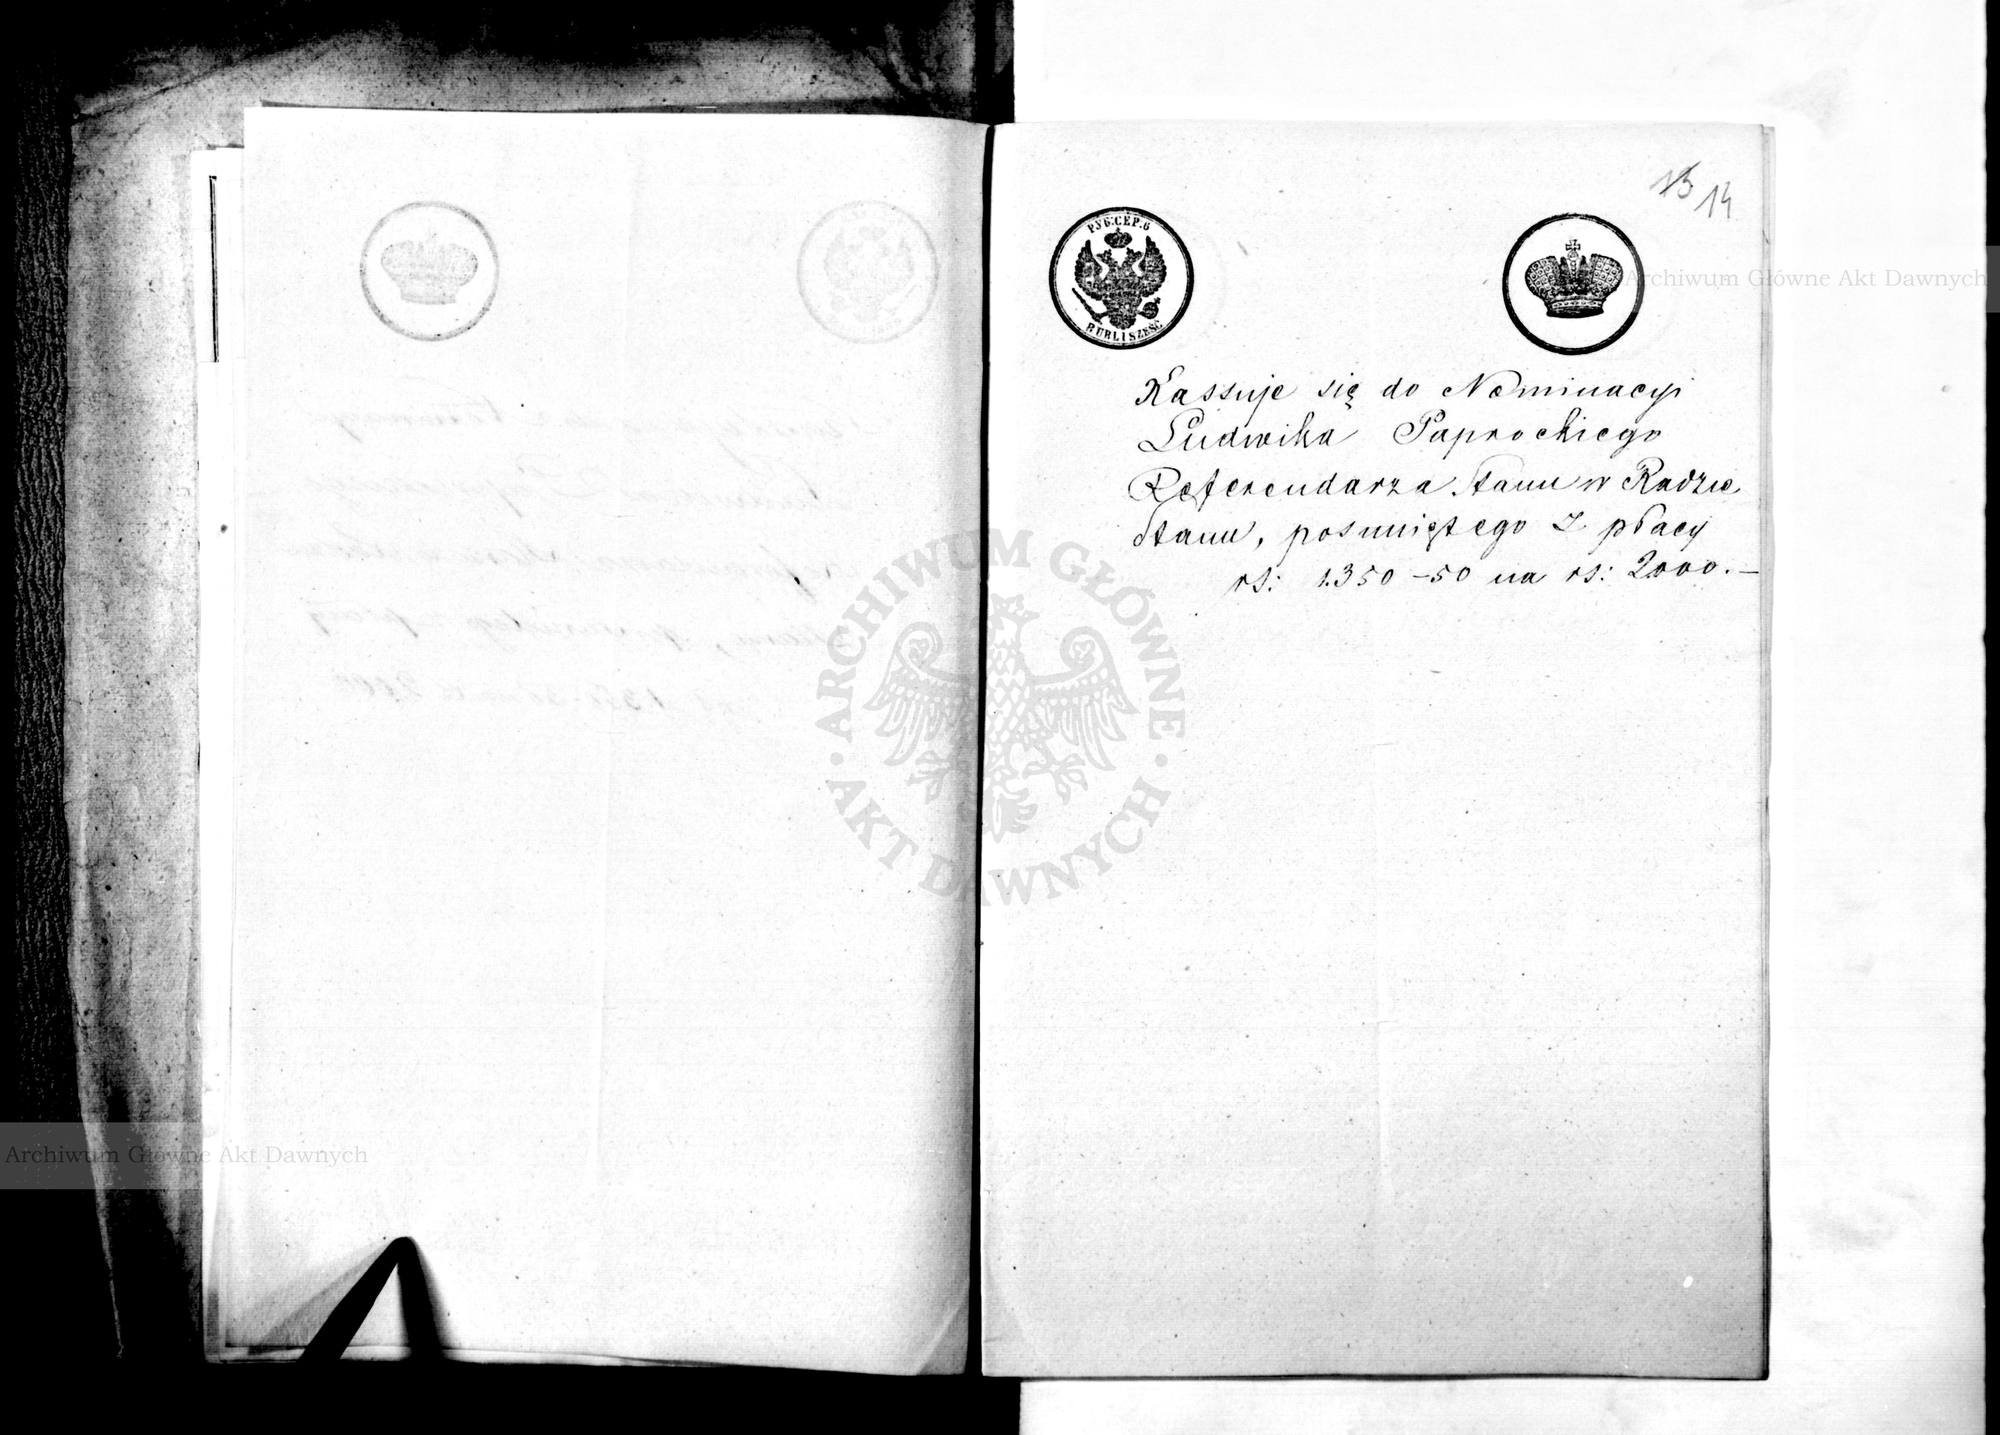 13 14
РУБ.СЕР.6
RUBLI SZEŚĆ
Kassuje się do Nominacyi
Ludwika Paprockiego
Referendarza Stanu w Radzie
Stanu, posuniętego z płacy
rs: 1.350-50 na rs: 2000.—
Archiwum Główne Akt Dawnych
ARCHIWUM GŁÓWNE
AKT DAWNYCH
Archiwum Główne Akt Dawnych